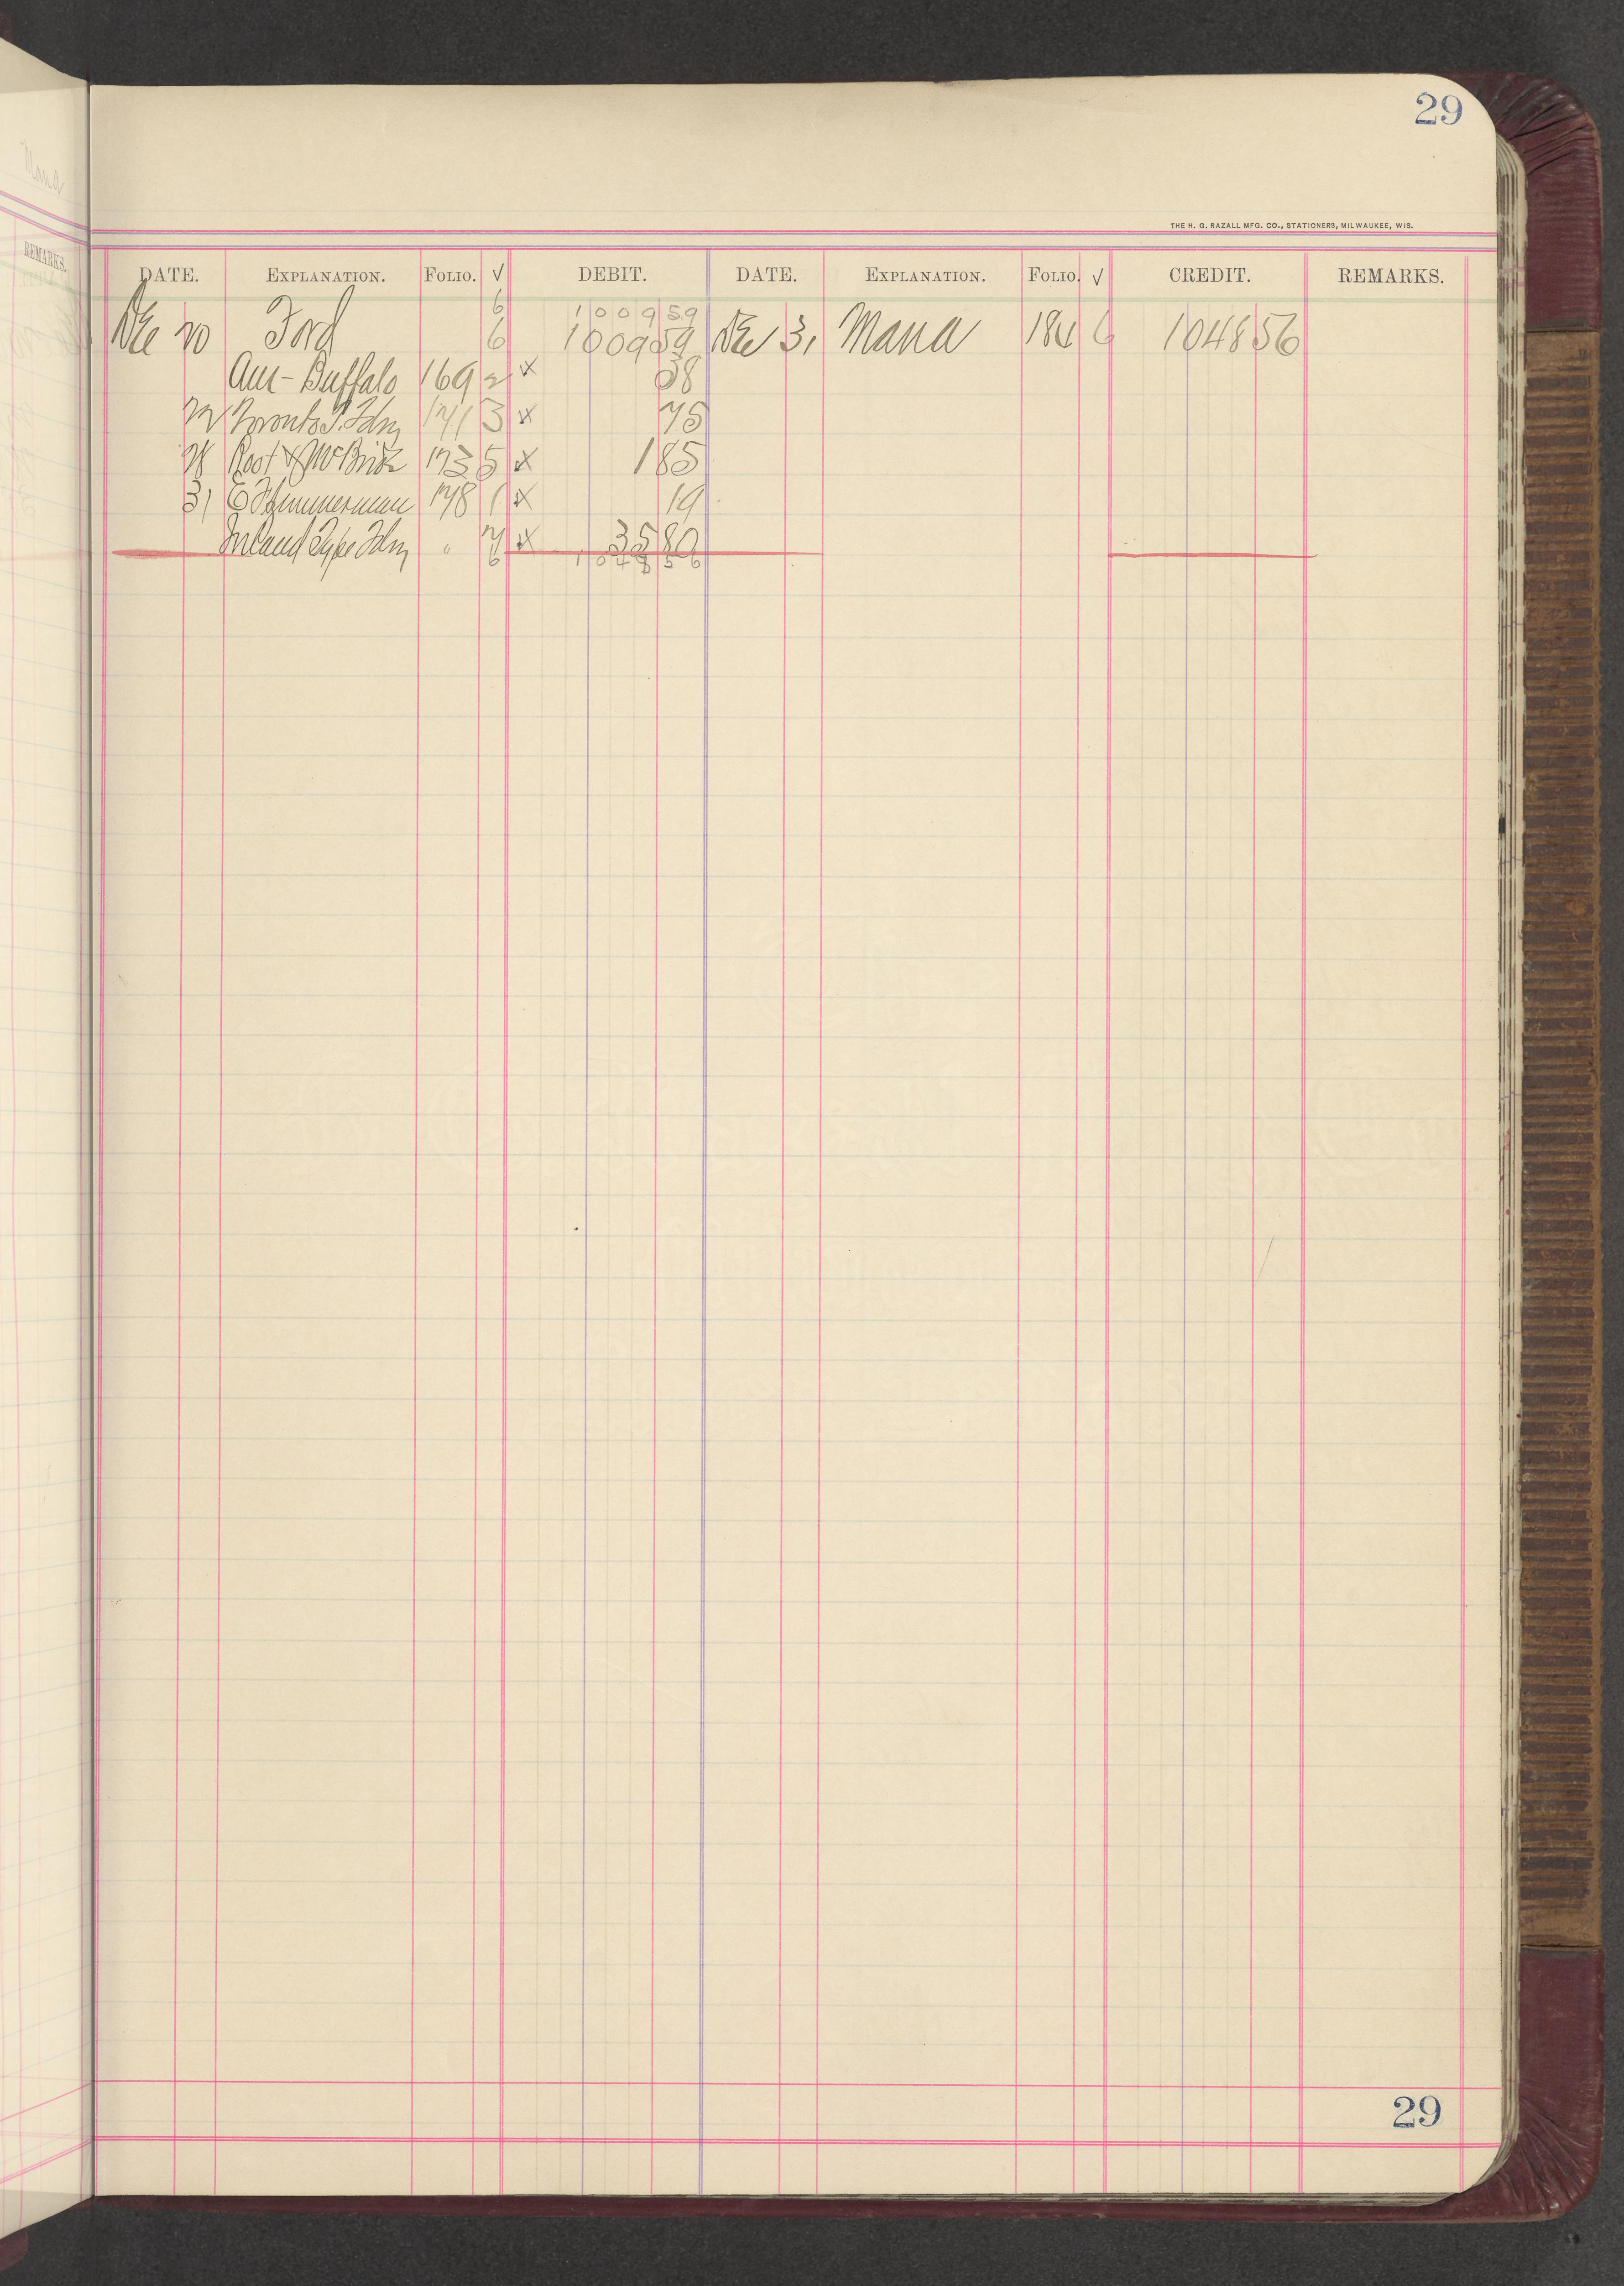 29
THE H. G. RAZALL MFG. CO., STATIONERS, MILWAUKEE, WIS.
DATE. EXPLANATION. FOLIO. √ DEBIT. DATE. EXPLANATION. FOLIO. √ CREDIT. REMARKS.
6 100959
Dec 20 Ford 6 100959 Dec 31 Mana 184 6 104856
Am-Buffalo 169 2 x 38
22 Toronto T. Fdry 171 3 x 75
28 Root & McBride 173 5 x 185
31 178 1 x 19
Inland Type Fdry " 7 x 3580
6 104856
29
Mana
REMARKS.